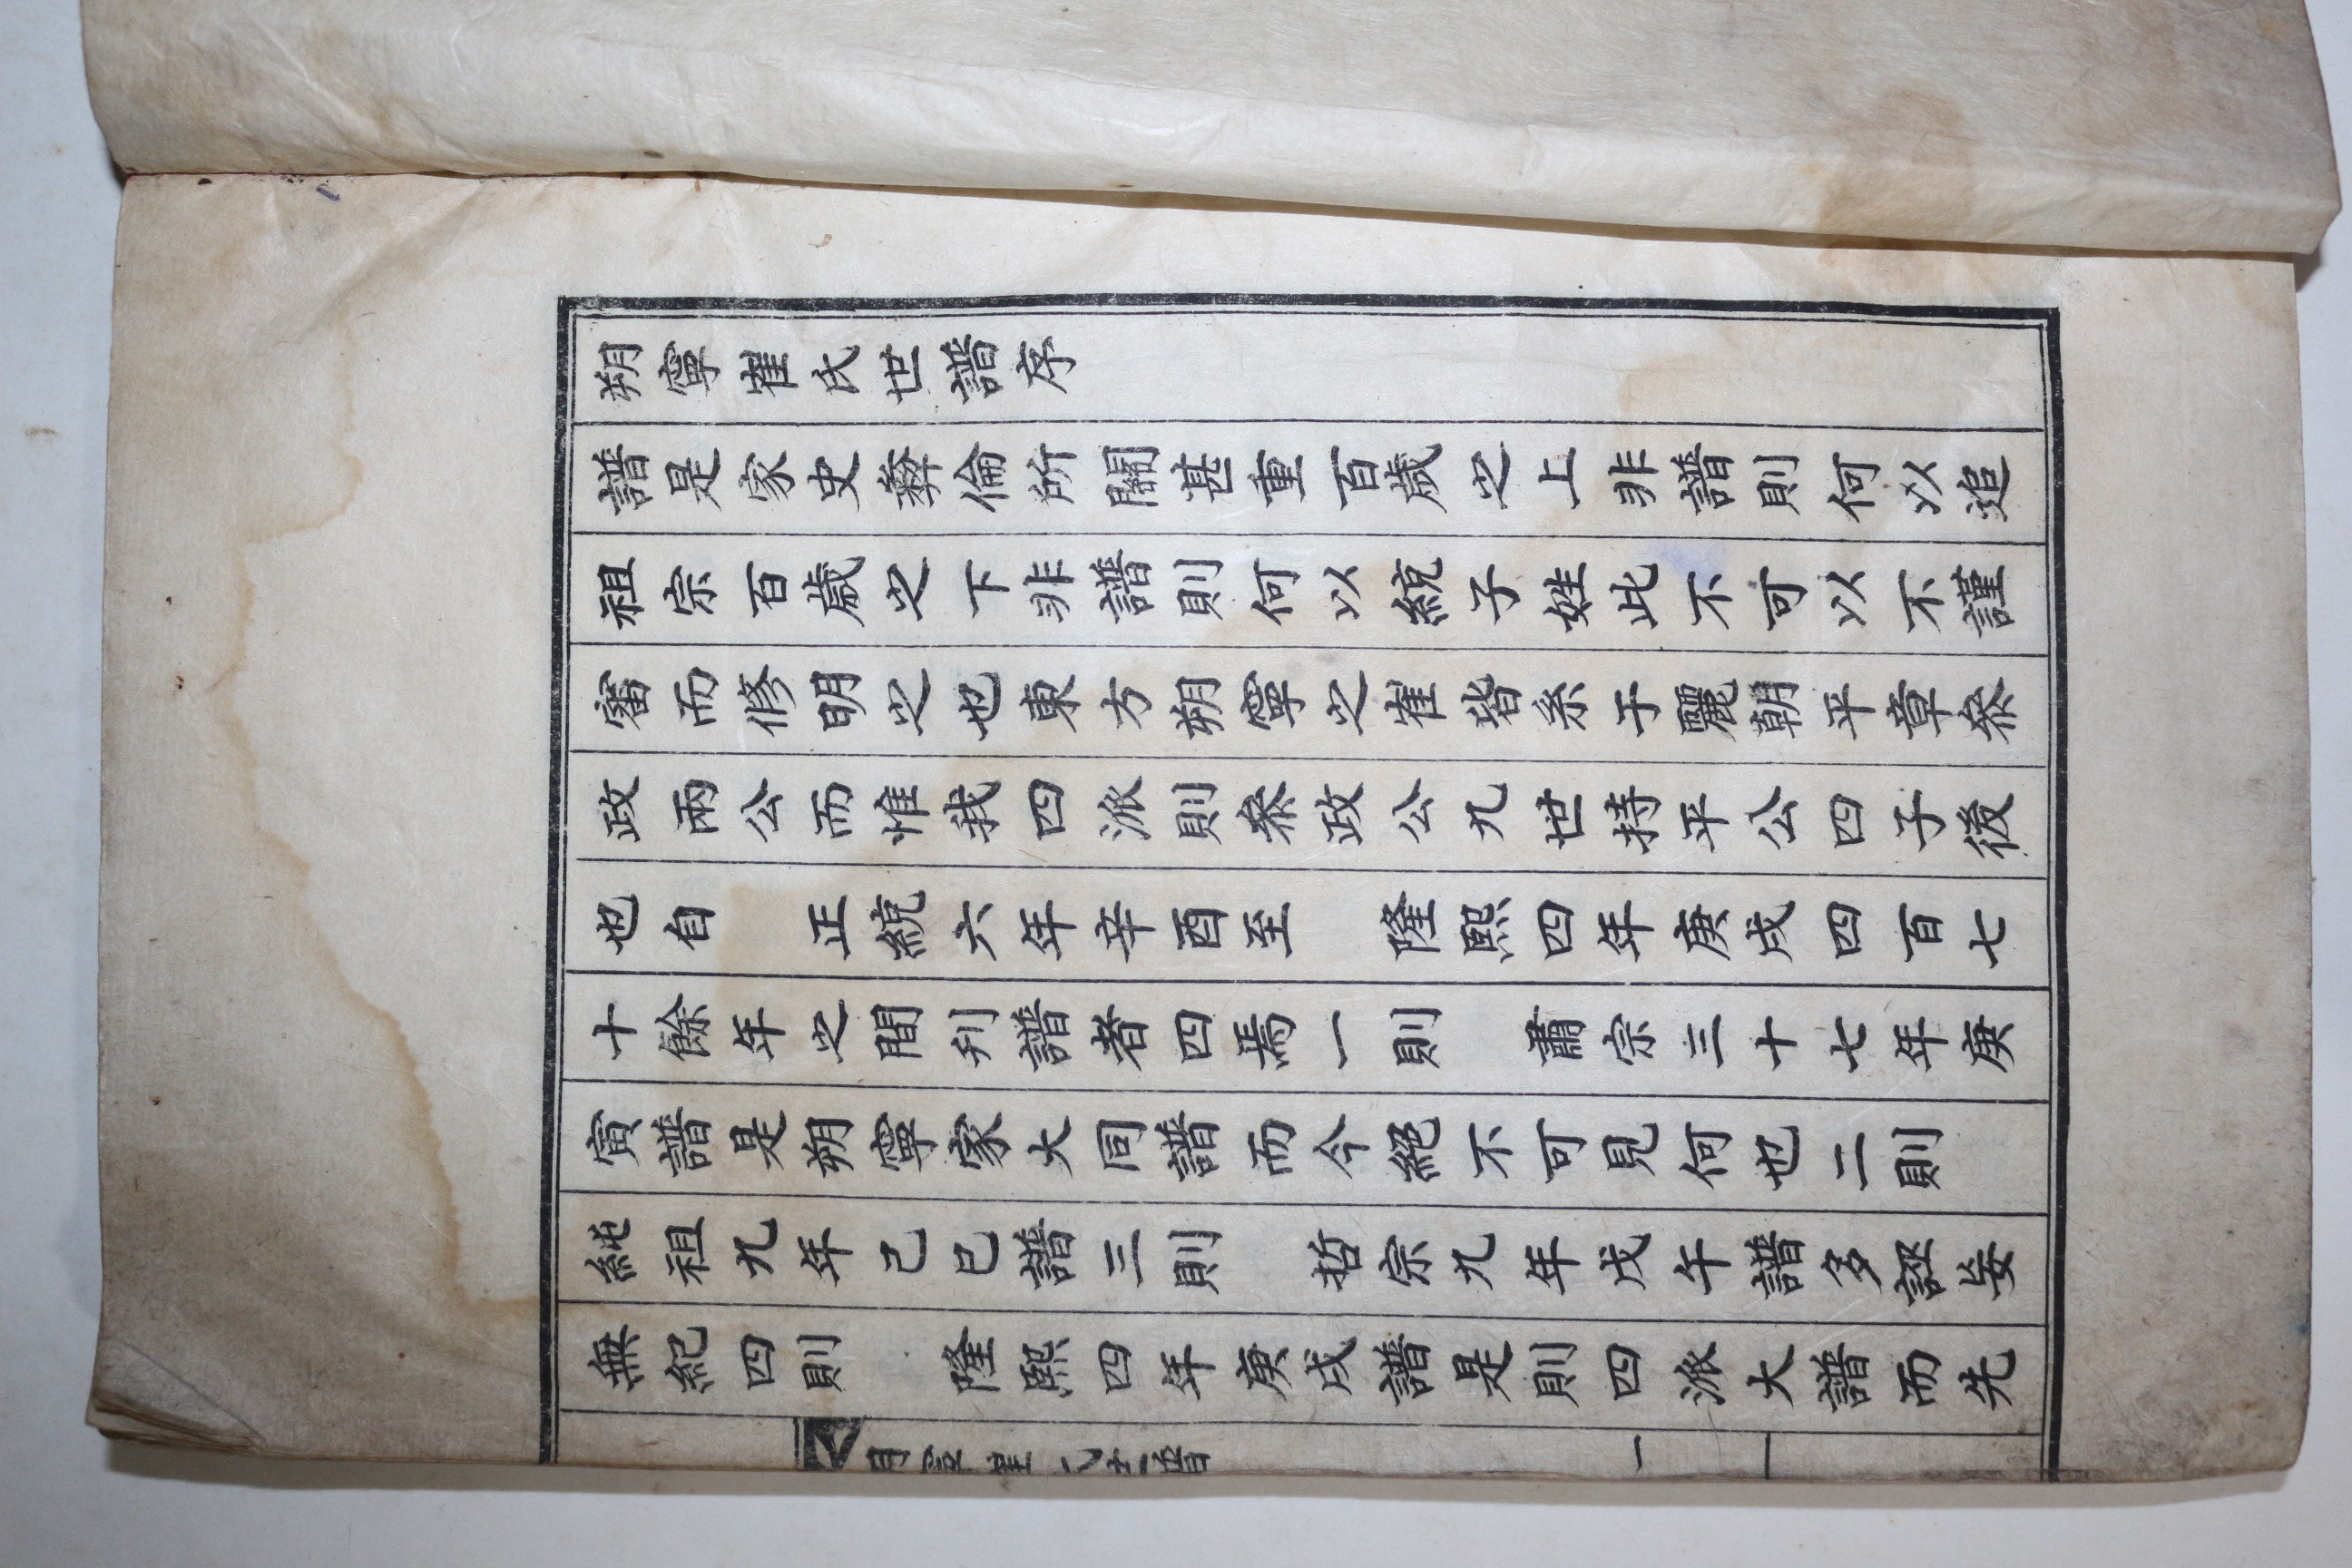 朔寧崔氏世譜序
譜是家史彝倫所關甚重百歲之上非譜則何以追
祖宗百歲之下非譜則何以統子姓此不可以不謹
審而修明之也東方朔寧之崔皆系于麗朝平章叅
政兩公而惟我四派則叅政公九世持平公四子後
也自 正統六年辛酉至 隆熙四年庚戌四百七
十餘年之間刋譜者四焉一則 肅宗三十七年庚
寅譜是朔寧家大同譜而今絕不可見何也二則
純祖九年己巳譜三則 哲宗九年戊午譜多誣妄
無紀四則 隆熙四年庚戌譜是則四派大譜而先
朔寧崔氏世譜 一